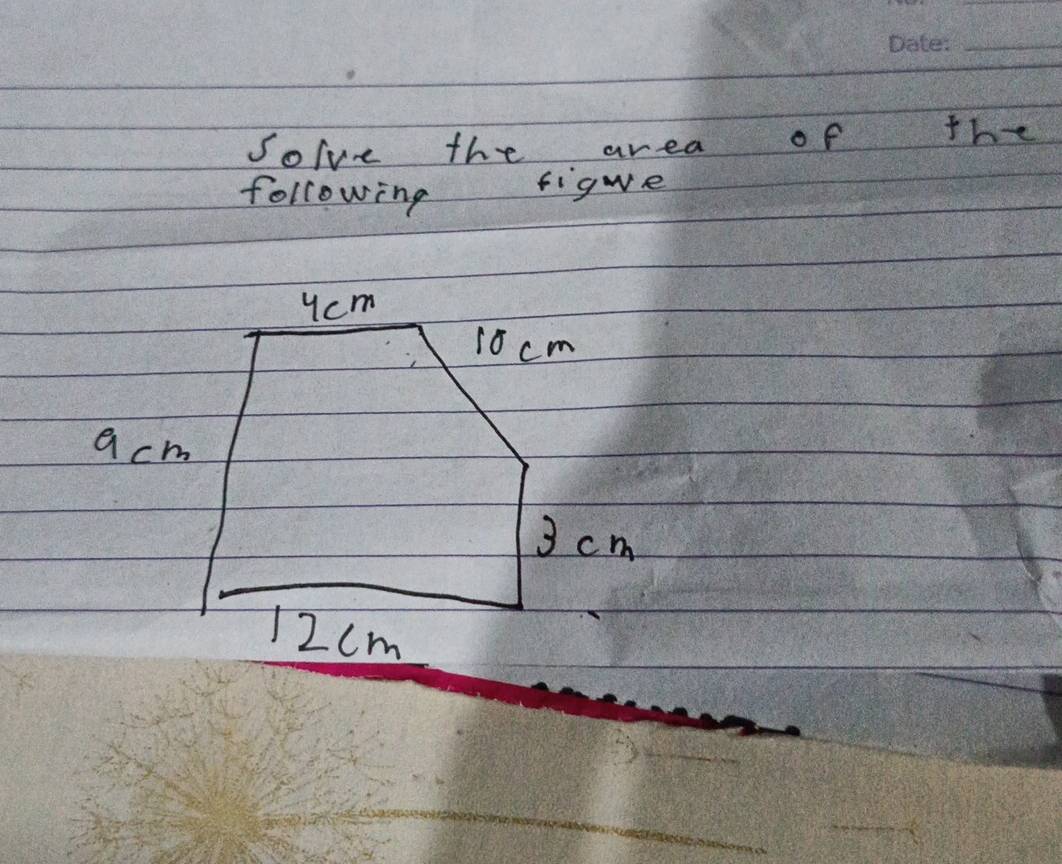 Date:
Solve the area of the
following figure
4cm
10 cm
9cm
3 cm
12cm